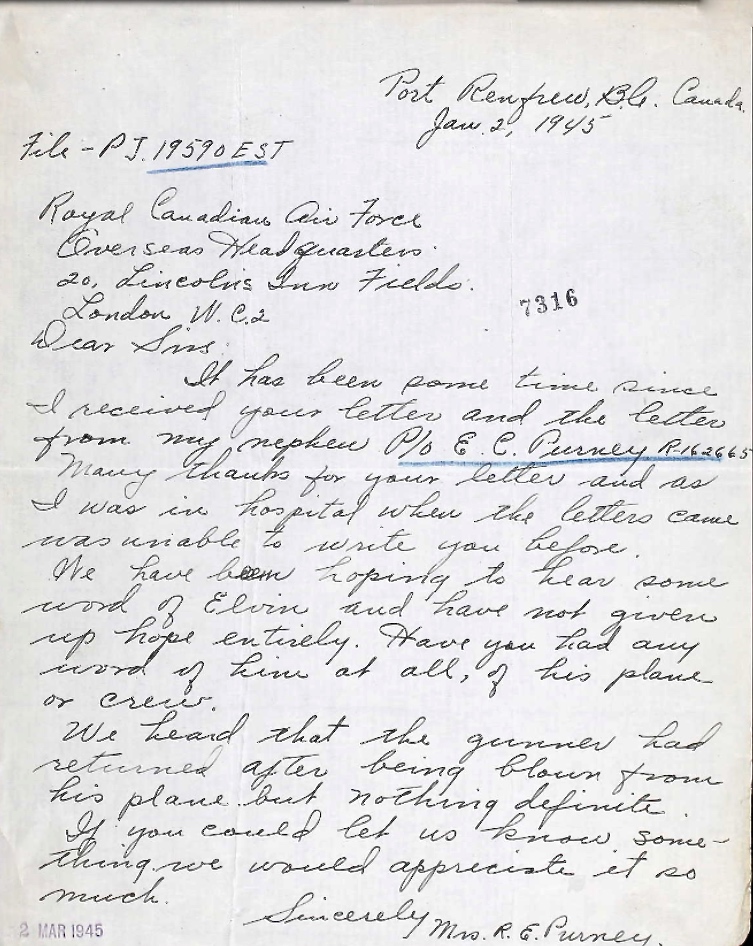 Port Renfrew, B.C. Canada.
Jan. 2, 1945
File - P J. 19590 EST
Royal Canadian Air Force
Overseas Headquarters.
20, Lincoln's Inn Fields.
London W.C.2
7316
Dear Sirs:
It has been some time since
I received your letter and the letter
from my nephew P/o E. C. Purney R-162665
Many thanks for your letter and as
I was in hospital when the letters came
was unable to write you before.
We have been hoping to hear some
word of Elvin and have not given
up hope entirely. Have you had any
word of him at all, of his plane
or crew.
We heard that the gunner had
returned after being blown from
his plane but nothing definite.
If you could let us know some-
thing we would appreciate it so
much.
Sincerely
Mrs. R. E. Purney.
2 MAR 1945